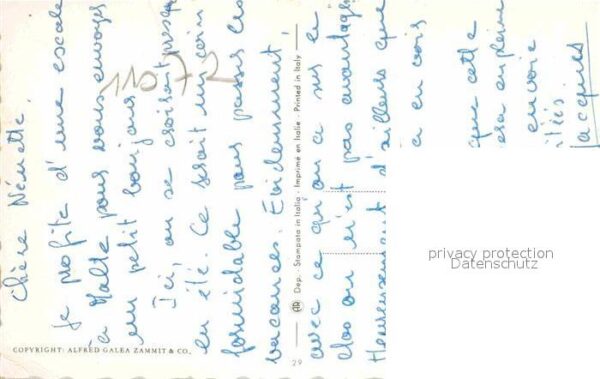 Chère Nénette.
Je profite d'une escale
à Malte pour vous envoyer
un petit bonjour.
Ici, on se croisait presq
en été. Ce serait un coin
formidable pour passer les
vacances. Évidemment
avec ce qu'on a sur le
dos on n'est pas avantagé
Heureusement d'ailleurs que
a en vois
que cette
sera en pleine
envoie
itiés
Jacques
11072
COPYRIGHT: ALFRED GALEA ZAMMIT & CO.
29
Dep. - Stampata in Italia - Imprimé en Italie - Printed in Italy
privacy protection
Datenschutz